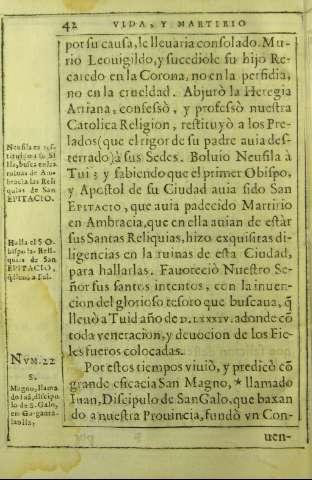 42 VIDA, Y MARTIRIO
por su causa, le lleuaria consolado. Mu-
rio Leouigildo, y sucediole su hijo Re-
caredo en la Corona, no en la perfidia,
no en la crueldad. Abjurò la Heregia
Arriana, confessò, y professò nuestra
Catolica Religion, restituyò a los Pre-
lados (que el rigor de su padre auia des-
terrado) à sus Sedes. Boluio Neufila à
Tui; y sabiendo que el primer Obispo,
y Apostol de su Ciudad auia sido San
EPITACIO, que auia padecido Martirio
en Ambracia, que en ella auian de estàr
sus Santas Reliquias, hizo exquisitas di-
ligencias en la ruinas de esta Ciudad,
para hallarlas. Fauoreciò Nuestro Se-
ñor sus santos intentos, con la inuen-
cion del glorioso tesoro que buscaua, q̃
lleuò a Tui año de D.LXXXIV. adonde cõ
toda veneracion, y deuocion de los Fie-
les fueros colocadas.
Por estos tiempos viuiò, y predicò cõ
grande eficacia San Magno, * llamado
Iuan, Discipulo de San Galo, que baxan
do a nuestra Prouincia, fundò vn Con-
uen-
Neufila es res-
tituìdo a su Si
lla, busca en las
ruinas de Am-
bracia las Reli
quias de San
EPITACIO.
Halla el S. O-
bispo las Reli-
quias de San
EPITACIO,
NVM. 22
S.
Magno, llama
do Iuã, discipu
lo de S. Galo,
en Garganta
la olla,